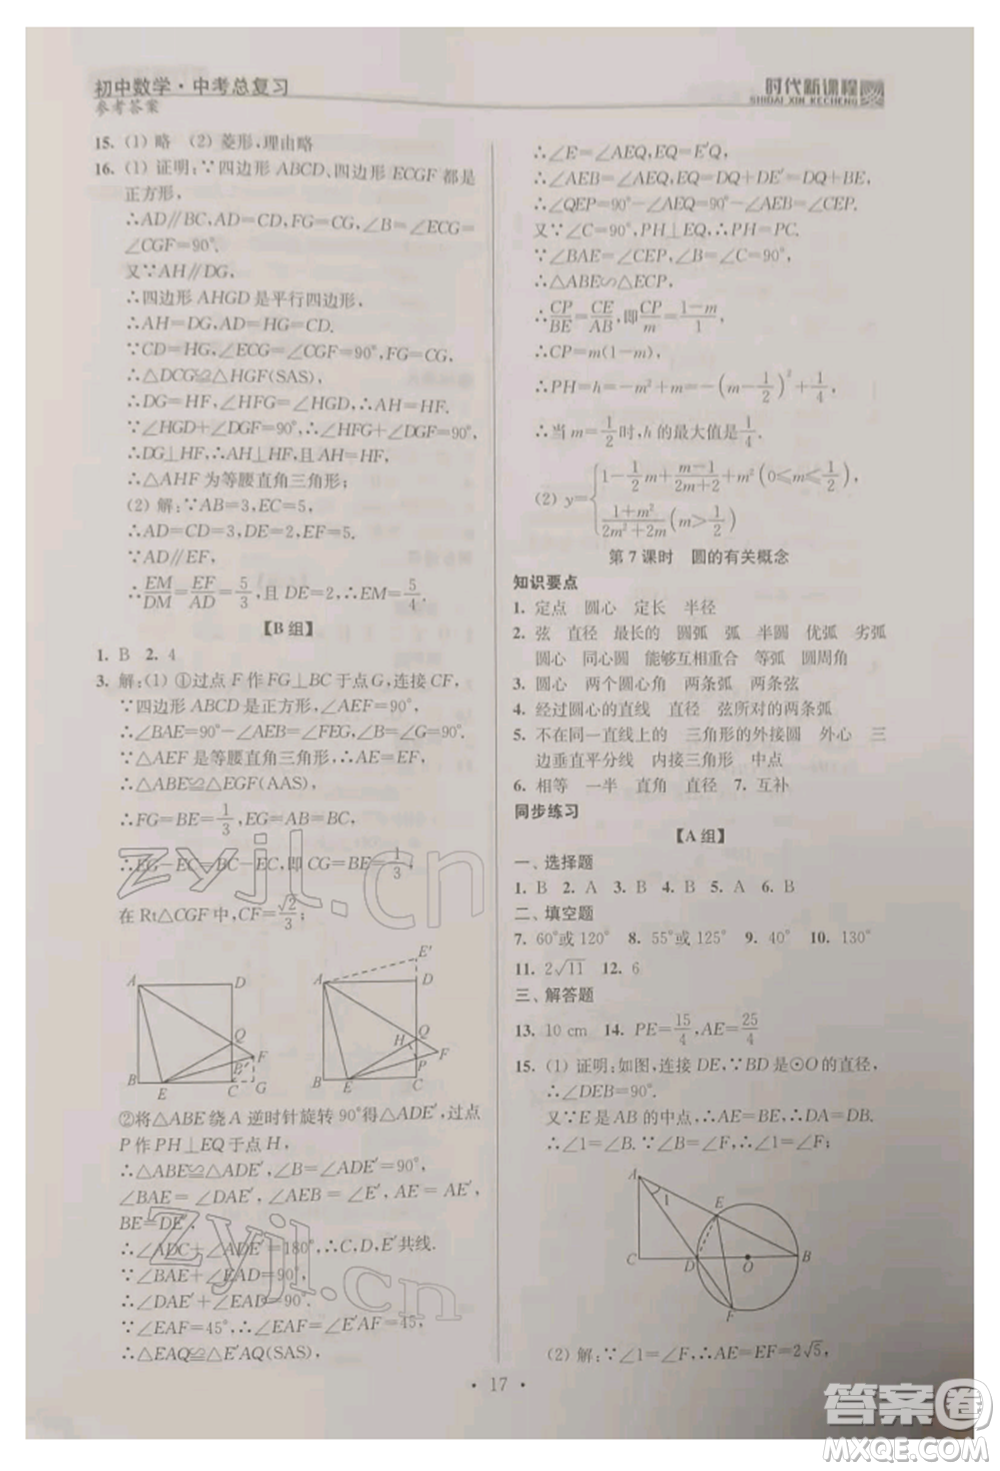 初中数学·中考总复习
参考答案
时代新课程
SHIDAI XIN KECHENG
15. (1) 略 (2) 菱形,理由略
16. (1) 证明:∵四边形 ABCD、四边形 ECGF 都是
正方形,
∴AD∥BC,AD=CD,FG=CG,∠B=∠CGF
=∠CGF=90°.
又∵AH∥DG,
∴四边形 AHGD 是平行四边形,
∴AH=DG,AD=HG=CD.
∵CD=HG,∠ECG=∠CGF=90°,FG=CG,
∴△DCG≌△HGF(SAS),
∴DG=HF,∠HFG=∠HGD,∴AH=HF.
∵∠HGD+∠DGF=90°,∴∠HFG+∠DGF=90°,
∴DG⊥HF,∴AH⊥HF,且 AH=HF,
∴△AHF 为等腰直角三角形;
(2) 解:∵AB=3,EC=5,
∴AD=CD=3,DE=2,EF=5.
∵AD∥EF,
∴EM/DM=EF/AD=5/3,且 DE=2,∴EM=5/4.
【B 组】
1. B 2. 4
3. 解:(1) ①过点 F 作 FG⊥BC 于点 G,连接 CF,
∵四边形 ABCD 是正方形,∠AEF=90°,
∴∠BAE=90°−∠AEB=∠FEG,∠B=∠G=90°.
∵△AEF 是等腰直角三角形,∴AE=EF,
∴△ABE≌△EGF(AAS),
∴FG=BE=1/3,EG=AB=BC,
∴EG−EC=BC−EC,即 CG=BE=1/3,
在 Rt△CGF 中,CF=√2/3;
A D Q F E′ B E C G
E′ A D H Q F P B E C
②将△ABE 绕 A 逆时针旋转 90°得△ADE′,过点
P 作 PH⊥EQ 于点 H,
∴△ABE≌△ADE′,∠B=∠ADE′=90°,
∠BAE=∠DAE′,∠AEB=∠E′,AE=AE′,
BE=DE′,
∴∠ADC+∠ADE′=180°,∴C、D、E′共线.
∵∠BAE+∠EAD=90°,
∴∠DAE′+∠EAD=90°.
∵∠EAF=45°,∴∠E′AF=∠EAF=45°,
∴△EAQ≌△E′AQ(SAS),
∴∠E=∠AEQ,EQ=E′Q,
∴∠AEB=∠AEQ,EQ=DQ+DE′=DQ+BE,
∴∠QEP=90°−∠AEQ=90°−∠AEB=∠CEP.
又∵∠C=90°,PH⊥EQ,∴PH=PC.
∵∠BAE=∠CEP,∠B=∠C=90°,
∴△ABE∽△ECP,
∴CP/BE=CE/AB,即CP/m=(1−m)/1,
∴CP=m(1−m),
∴PH=h=−m²+m=−(m−1/2)²+1/4,
∴当 m=1/2时,h 的最大值是1/4.
(2) y={1−1/2m+(m−1)/(2m+2)(0≤m≤1/2),
(1+m²)/(2m²+2m)(m>1/2)
第 7 课时 圆的有关概念
知识要点
1. 定点 圆心 定长 半径
2. 弦 直径 最长的 圆弧 弧 半圆 优弧 劣弧
圆心 同心圆 能够互相重合 等弧 圆周角
3. 圆心 两个圆心角 两条弧 两条弦
4. 经过圆心的直线 直径 弦所对的两条弧
5. 不在同一直线上的 三角形的外接圆 外心 三
边垂直平分线 内接三角形 中点
6. 相等 一半 直角 直径 7. 互补
同步练习
【A 组】
一、选择题
1. B 2. A 3. B 4. B 5. A 6. B
二、填空题
7. 60°或 120° 8. 55°或 125° 9. 40° 10. 130°
11. 2√11 12. 6
三、解答题
13. 10 cm 14. PE=15/4,AE=25/4
15. (1) 证明:如图,连接 DE,∵BD 是⊙O 的直径,
∴∠DEB=90°.
又∵E 是 AB 的中点,∴AE=BE,∴DA=DB
∴∠1=∠B. ∵∠B=∠F,∴∠1=∠F;
A 1 E C D O B F
(2) 解:∵∠1=∠F,∴AE=EF=2√5,
· 17 ·
zyjl.cn
zyjl.cn
答案卷
MXQE.COM